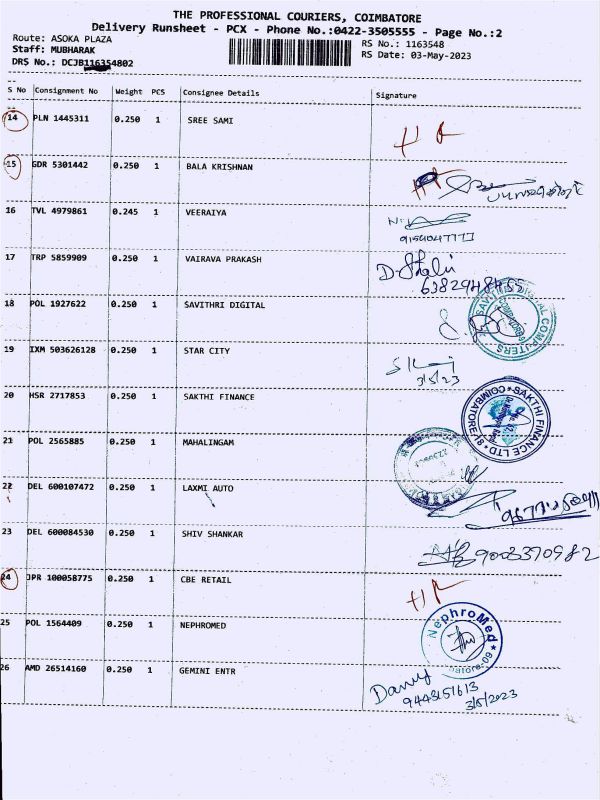 THE PROFESSIONAL COURIERS, COIMBATORE
Delivery Runsheet - PCX - Phone No.:0422-3505555 - Page No.:2
Route: ASOKA PLAZA RS No.: 1163548
Staff: MUBHARAK RS Date: 03-May-2023
DRS No.: DCJB116354802
S No Consignment No Weight PCS Consignee Details Signature
14 PLN 1445311 0.250 1 SREE SAMI
15 GDR 5301442 0.250 1 BALA KRISHNAN
16 TVL 4979861 0.245 1 VEERAIYA
17 TRP 5859909 0.250 1 VAIRAVA PRAKASH
D. Shalu
6382948455
18 POL 1927622 0.250 1 SAVITHRI DIGITAL
SAVITHRI DIGITAL COMPUTERS
19 IXM 503626128 0.250 1 STAR CITY
3/5/23
20 HSR 2717853 0.250 1 SAKTHI FINANCE
SAKTHI FINANCE LTD COIMBATORE
21 POL 2565885 0.250 1 MAHALINGAM
22 DEL 600107472 0.250 1 LAXMI AUTO
23 DEL 600084530 0.250 1 SHIV SHANKAR
9003370982
24 JPR 100058775 0.250 1 CBE RETAIL
25 POL 1564409 0.250 1 NEPHROMED
NephroMed
26 AMD 26514160 0.250 1 GEMINI ENTR
9443151613
3/5/2023